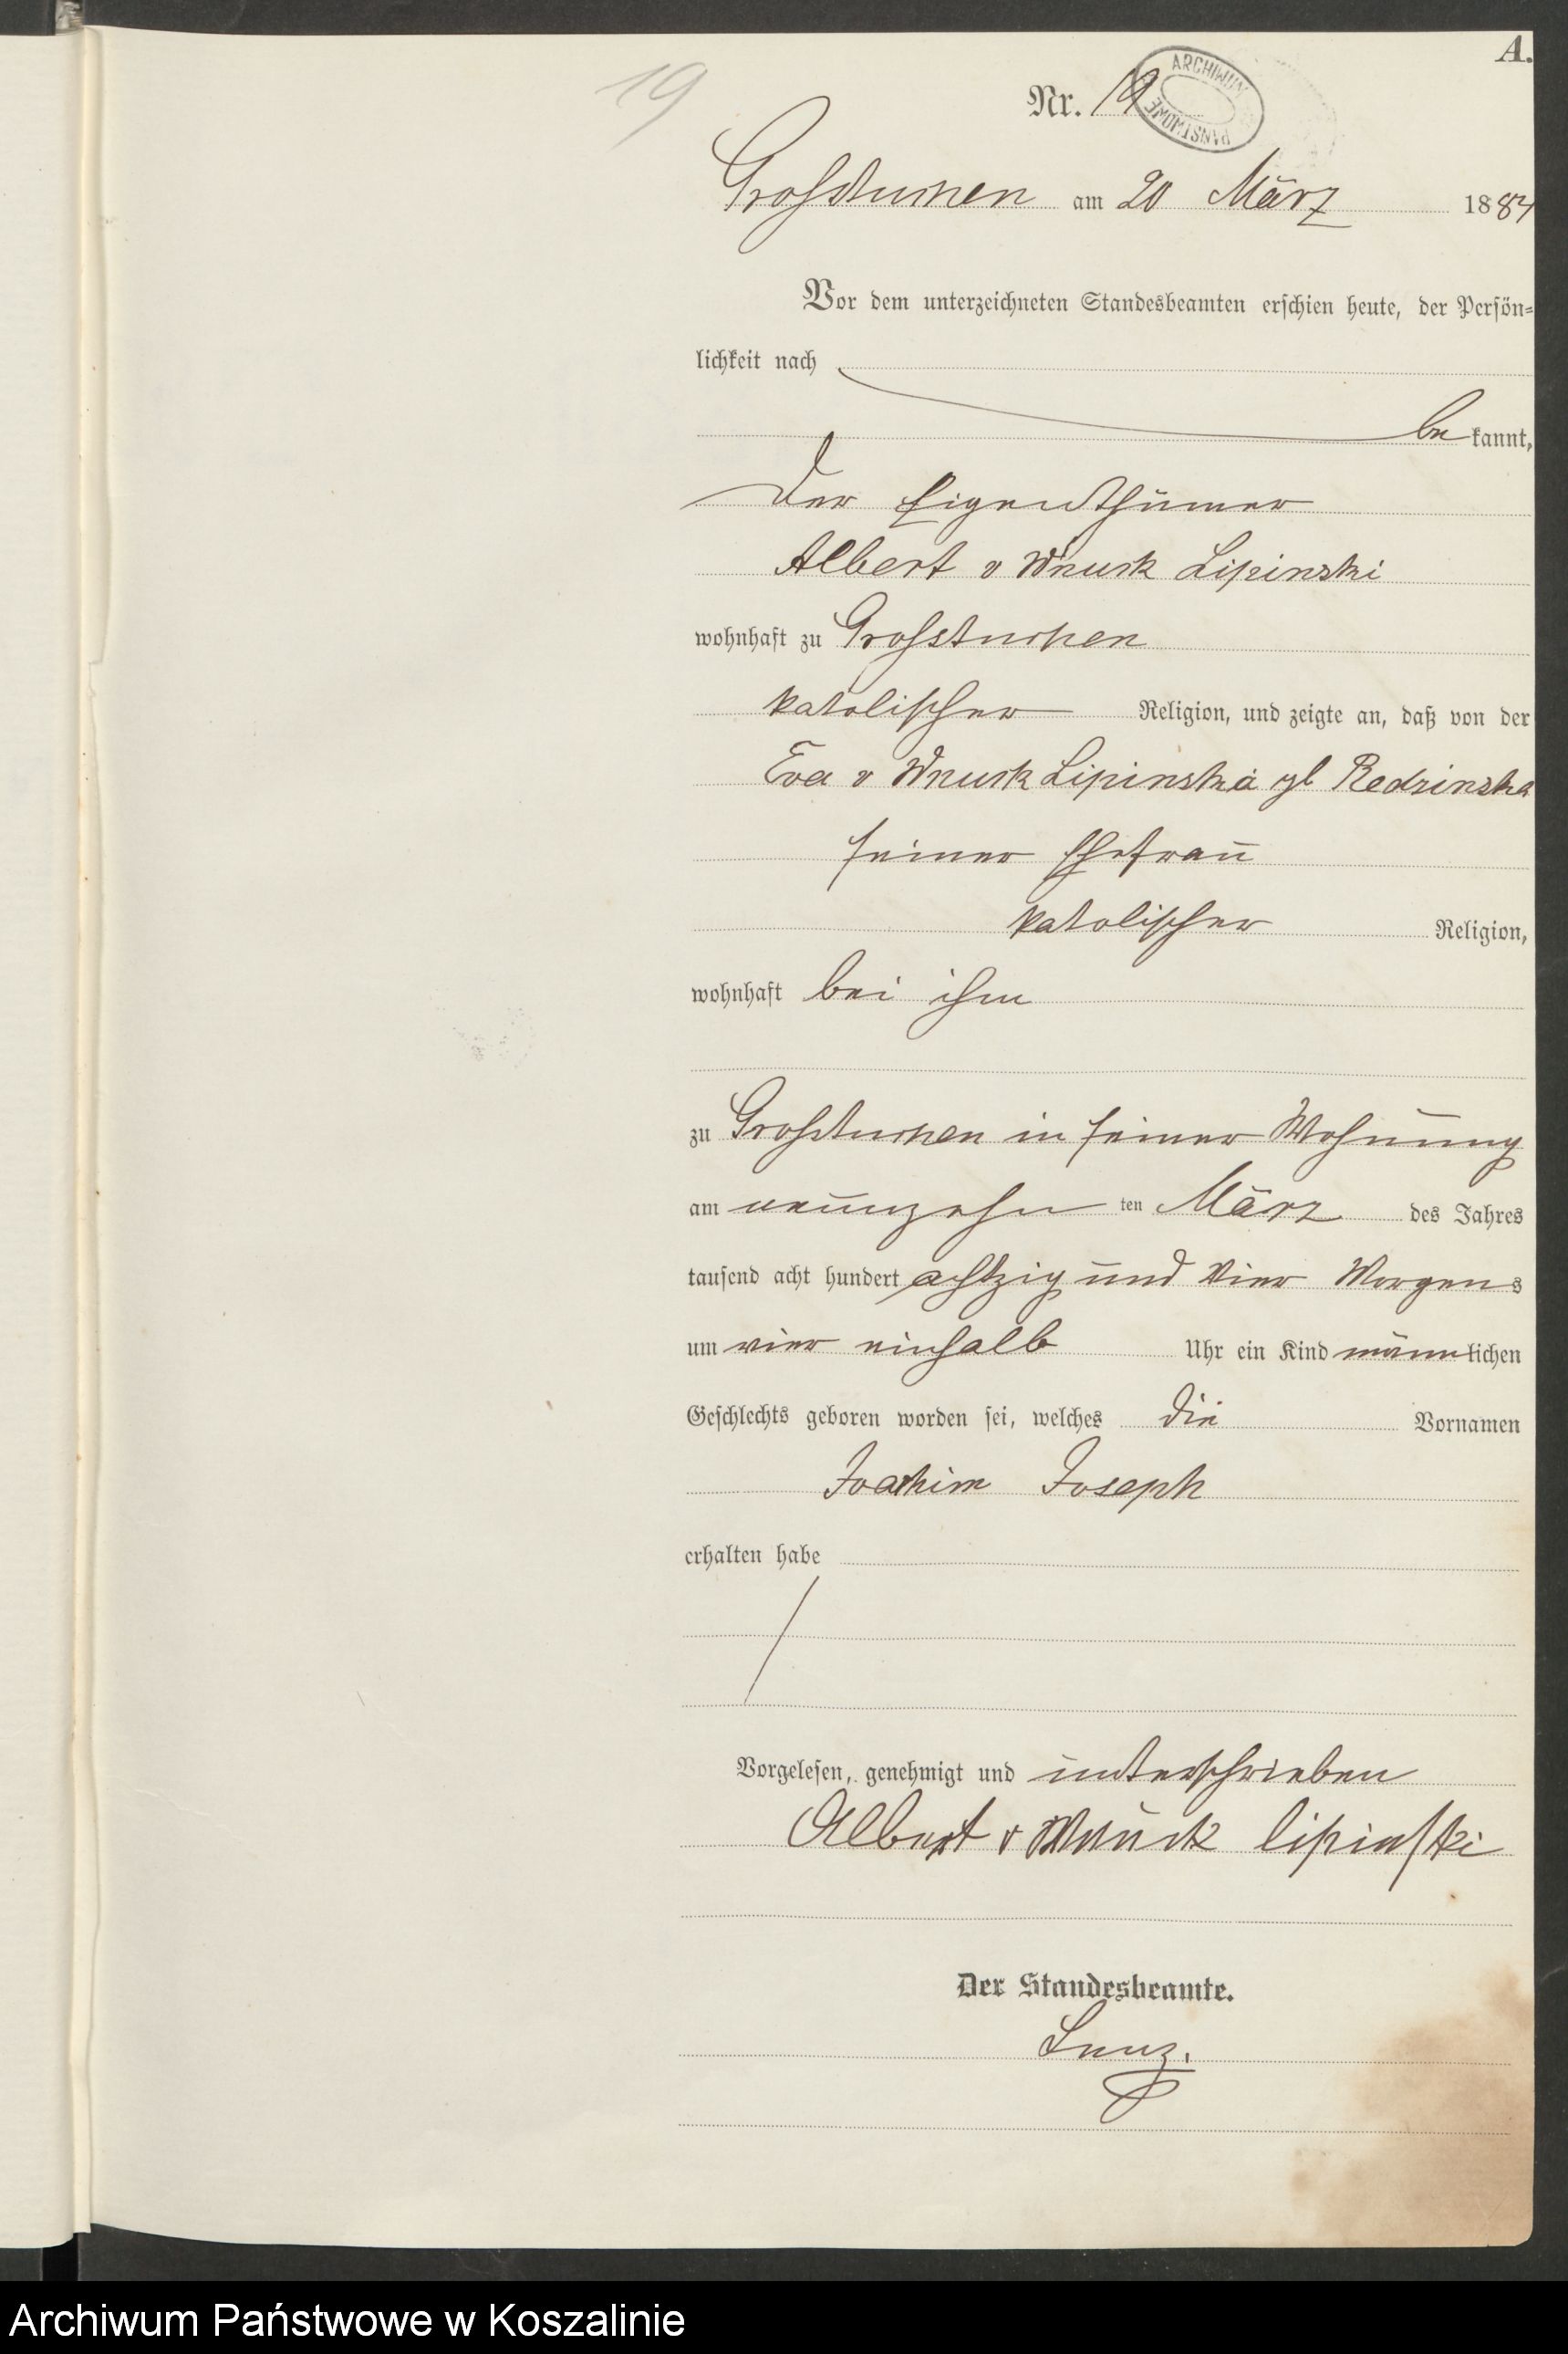 A.
19
Nr. 19
ARCHIWUM PAŃSTWOWE
Grosstuchen am 20 März 1884
Vor dem unterzeichneten Standesbeamten erschien heute, der Persön=
lichkeit nach
be kannt,
der Eigenthümer
Albert v Wnuck Lipinski
wohnhaft zu Grosstuchen
katolischer Religion, und zeigte an, daß von der
Eva v Wnuck Lipinska gb Redzinska
seiner Ehefrau
katolischer Religion,
wohnhaft bei ihm
zu Grosstuchen in seiner Wohnung
am neunzehn ten März des Jahres
tausend acht hundert achtzig und vier Morgens
um vier einhalb Uhr ein Kind männlichen
Geschlechts geboren worden sei, welches die Vornamen
Joachim Joseph
erhalten habe
Vorgelesen, genehmigt und unterschrieben
Albert v Wnuck lipinski
Der Standesbeamte.
Archiwum Państwowe w Koszalinie